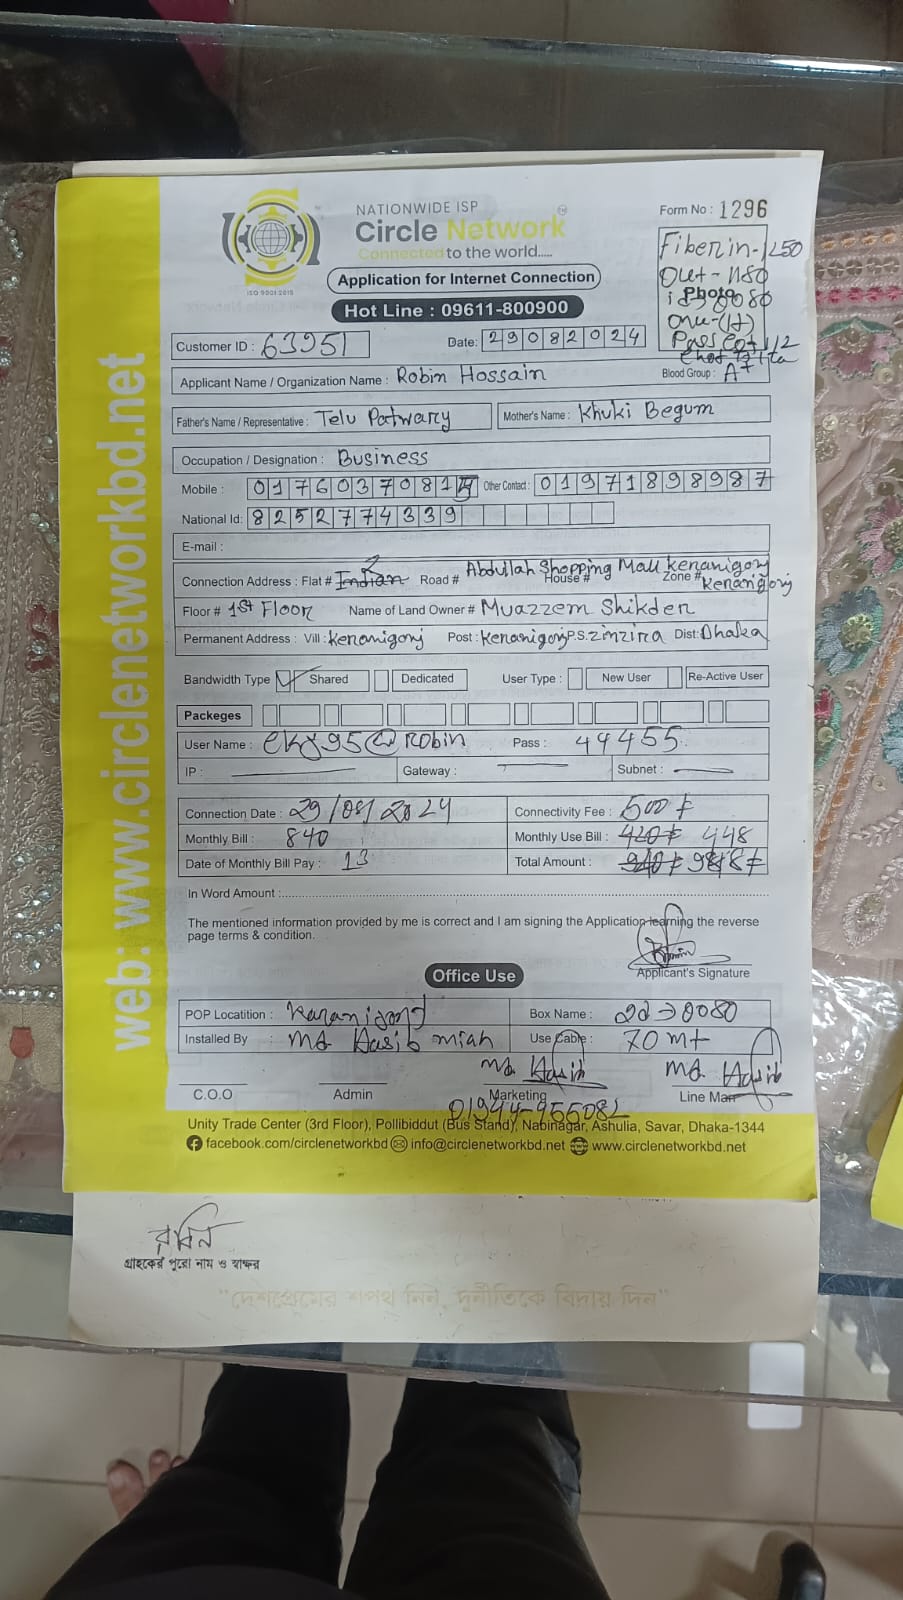 NATIONWIDE ISP
Circle Network
Connected to the world.....
ISO 9001:2015
Application for Internet Connection
Hot Line : 09611-800900
Form No : 1296
Fiber in- 1250
Out - 1180
Photo
Onu-(1)
Customer ID : 63951
Date: 29082024
Blood Group : A+
Applicant Name / Organization Name : Robin Hossain
Father's Name / Representative : Telu Patwary
Mother's Name : Khuki Begum
Occupation / Designation : Business
Mobile : 0176037081
Other Contact : 01971898987
National Id: 8252774339
E-mail :
Connection Address : Flat # Indian Road # Abdullah Shopping Mall kenanigonj
House # Zone # Kenanigonj
Floor # 1st Floor Name of Land Owner # Muazzem Shikder
Permanent Address : Vill : kenanigonj Post : kenanigonj P.S. zinzira Dist: Dhaka
Bandwidth Type Shared Dedicated User Type : New User Re-Active User
Packeges
User Name : Pass : 44455
IP : Gateway : Subnet :
Connection Date : 29/08/2024 Connectivity Fee : 500
Monthly Bill : 840 Monthly Use Bill : 420 448
Date of Monthly Bill Pay : 13 Total Amount :
In Word Amount :
The mentioned information provided by me is correct and I am signing the Application learning the reverse
page terms & condition.
Applicant's Signature
Office Use
POP Locatition : Karanigonj Box Name :
Installed By : Md Hasib miah Use Cable : 70 mt
Md. Hasib Md. Hasib
C.O.O Admin Marketing Line Man
01944-955082
Unity Trade Center (3rd Floor), Pollibiddut (Bus Stand), Nabinagar, Ashulia, Savar, Dhaka-1344
facebook.com/circlenetworkbd info@circlenetworkbd.net www.circlenetworkbd.net
web: www.circlenetworkbd.net
রবিন
গ্রাহকের পুরো নাম ও স্বাক্ষর
"দেশপ্রেমের শপথ নিন, দুর্নীতিকে বিদায় দিন"